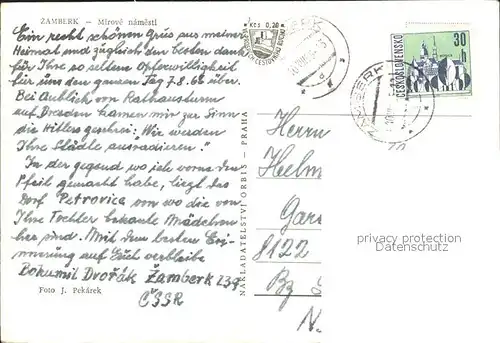 ŽAMBERK – Mírové náměstí
Ein recht schönen Grüs aus meiner
Heimat und zugleich den besten dank
für Ihre so seltene Opferwilligkeit
für uns den ganzen Tag 7.8.66 über.
Bei Aublick von Rathausturm
auf Dresden kamen mir zur Sinn
die Hitlers geschrei: „Wir werden
Ihre Städte ausradieren."
In der gegend wo ich vorne den
Pfeil gemacht habe, liegt des
Dorf Petrovice von wo die von
Ihre Tochter bekante Mädchen
her sind. Mit dem besten Eri-
nnerung auf Euch verbleibe
Bohumil Dvořák Žamberk 239
ČSSR
Foto J. Pekárek
NAKLADATELSTVÍ ORBIS – PRAHA
Kčs 0,20
ŽAMBERK
ČESKOSLOVENSKO
30 h
ŽAMBERK
Herrn
Helm
Gar
8122
Bz
N.
privacy protection
Datenschutz